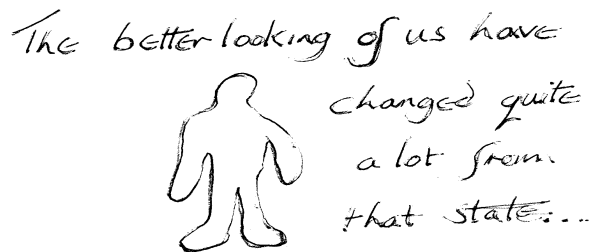 The better looking of us have
changed quite
a lot from
that state...